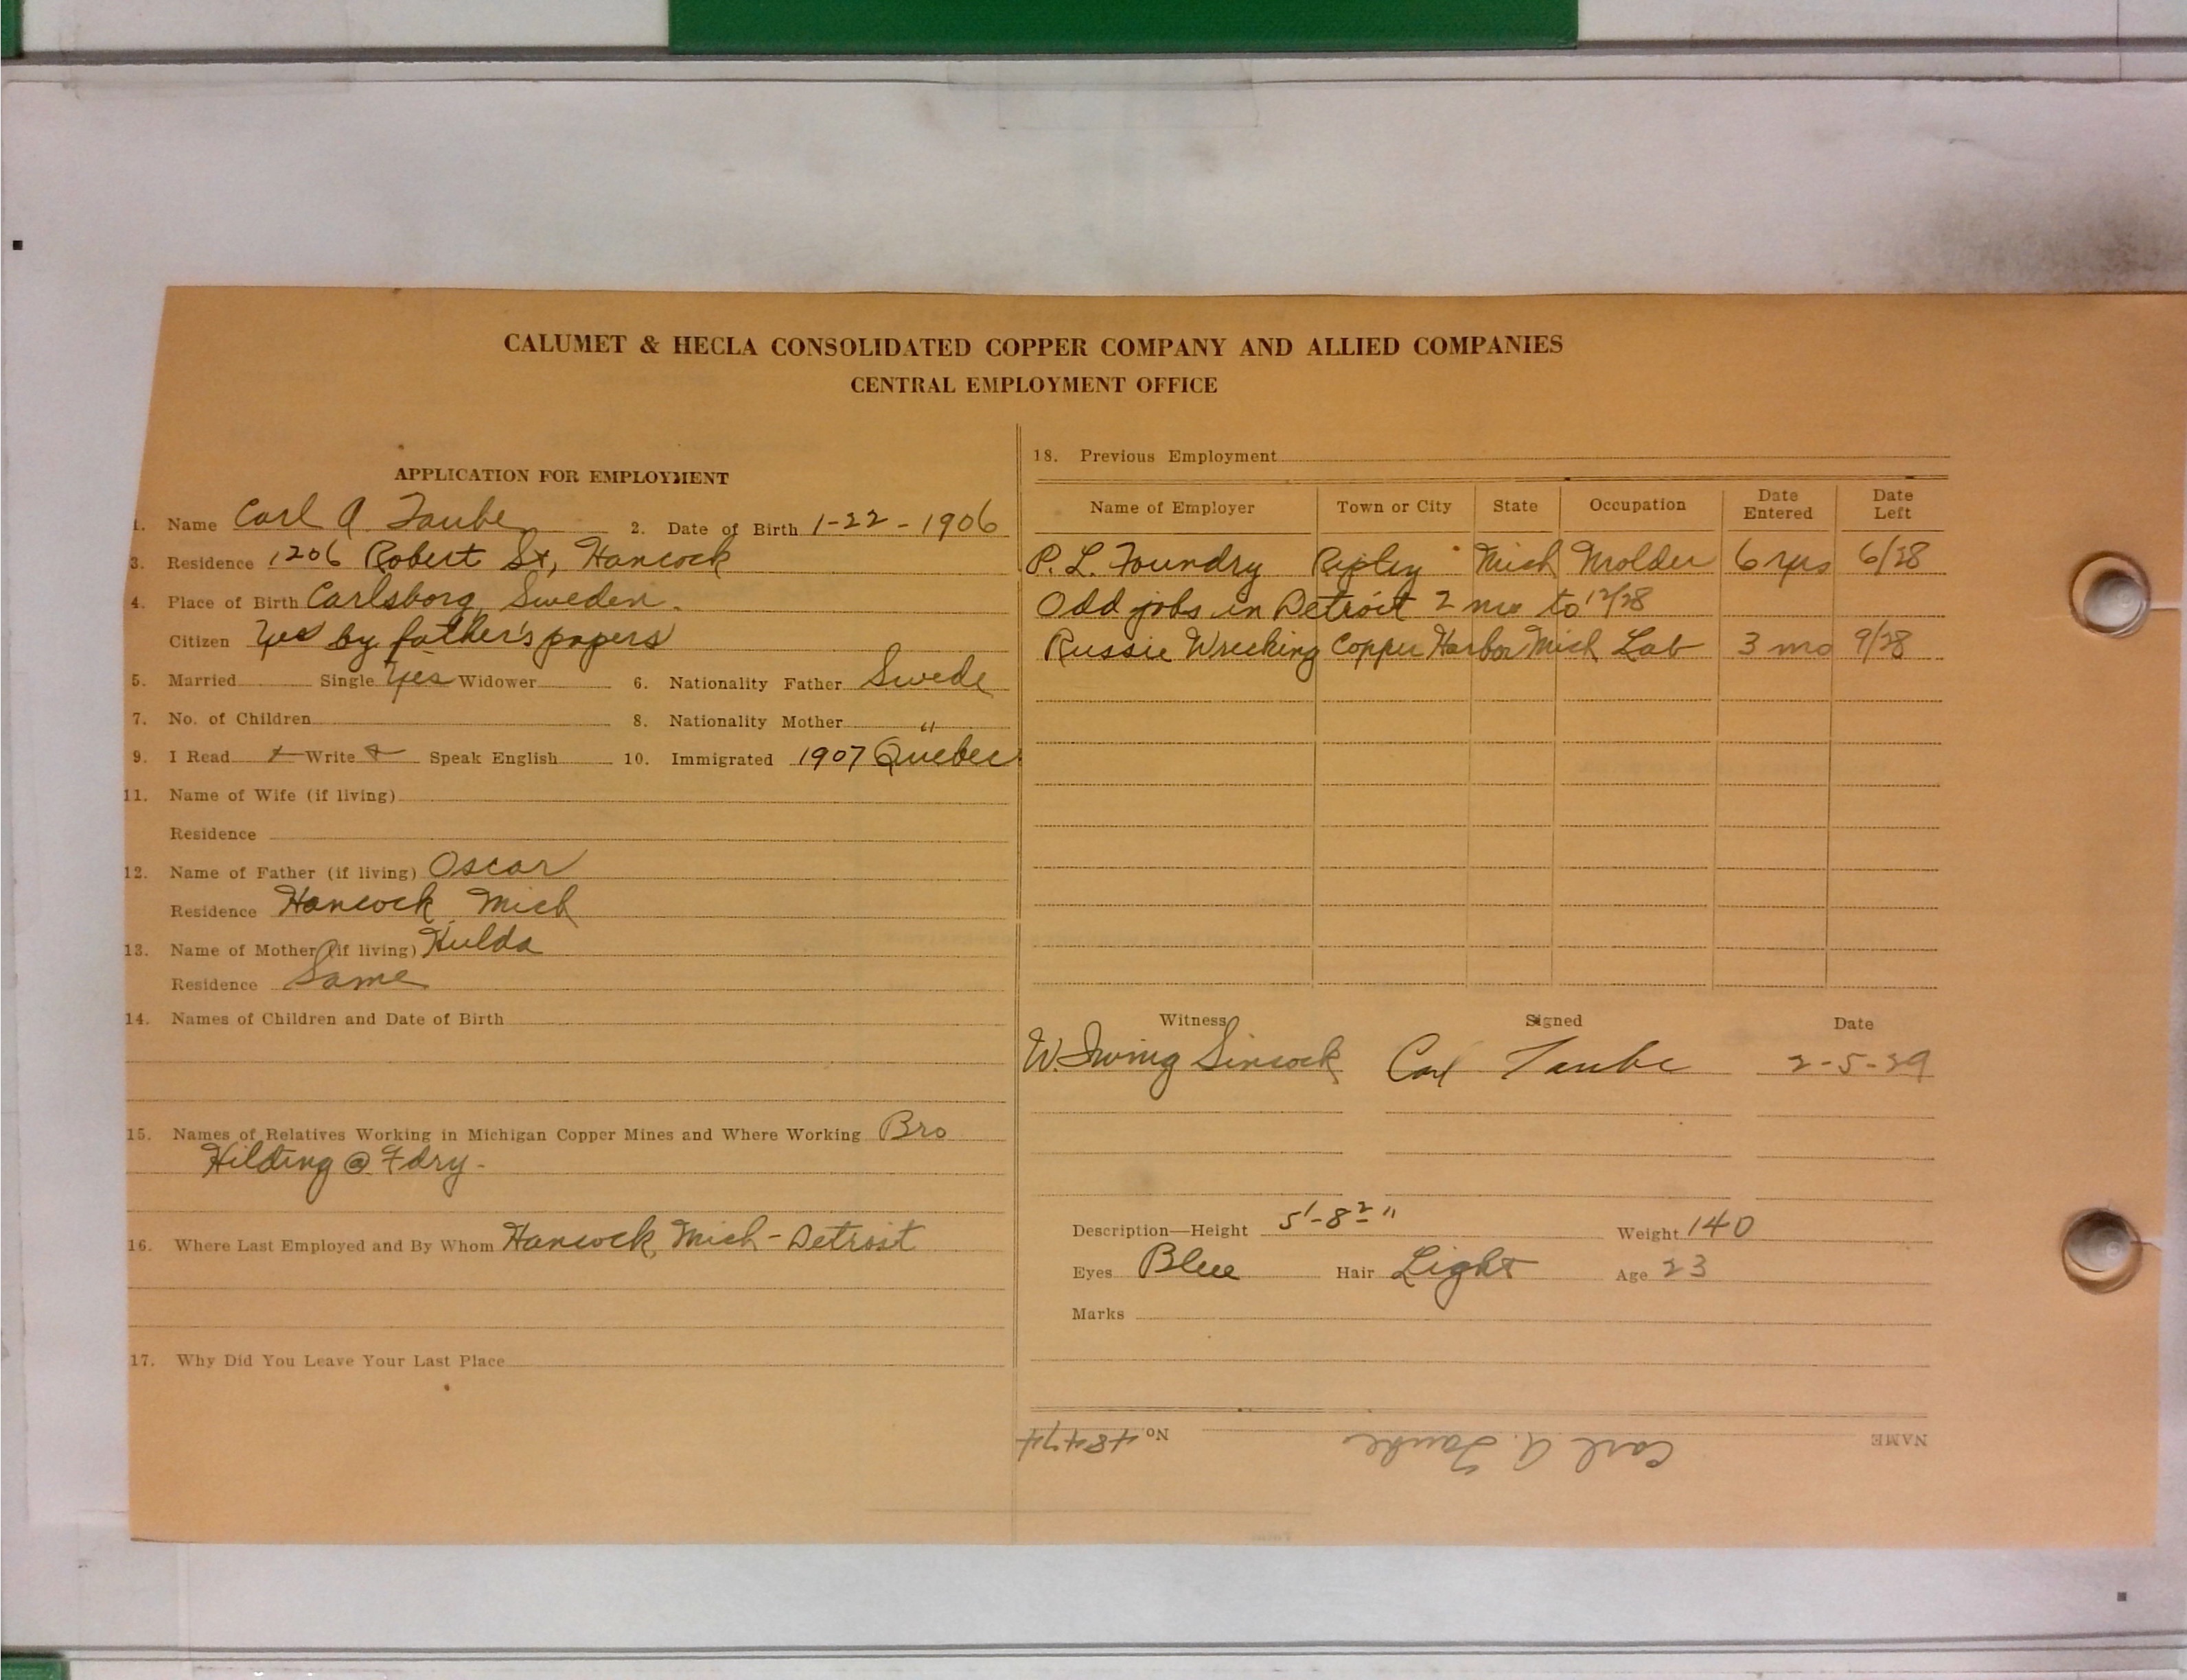 CALUMET & HECLA CONSOLIDATED COPPER COMPANY AND ALLIED COMPANIES
CENTRAL EMPLOYMENT OFFICE
APPLICATION FOR EMPLOYMENT
1. Name Carl A. Taube 2. Date of Birth 1-22-1906
3. Residence 1206 Robert St, Hancock
4. Place of Birth Carlsborg, Sweden.
Citizen Yes by father's papers
5. Married Single Yes Widower 6. Nationality Father Swede
7. No. of Children 8. Nationality Mother "
9. I Read Write Speak English 10. Immigrated 1907 Quebec
11. Name of Wife (if living)
Residence
12. Name of Father (if living) Oscar
Residence Hancock, Mich
13. Name of Mother (if living) Hulda
Residence Same
14. Names of Children and Date of Birth
15. Names of Relatives Working in Michigan Copper Mines and Where Working Bro
Hilding @ Fdry-
16. Where Last Employed and By Whom Hancock, Mich - Detroit
17. Why Did You Leave Your Last Place
18. Previous Employment
Name of Employer Town or City State Occupation Date Entered Date Left
P. L. Foundry Ripley Mich Molder 6 yrs 6/28
Odd jobs in Detroit 2 mo to 12/28
Russie Wrecking Copper Harbor Mich Lab 3 mo 9/28
Witness Signed Date
W. Irving Sincock Carl Taube 2-5-29
Description—Height 5'-8 " Weight 140
Eyes Blue Hair Light Age 23
Marks
NAME Carl A. Taube No. 48474